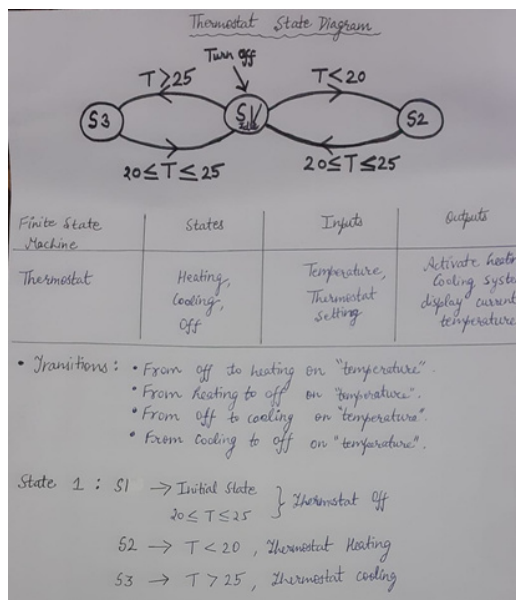 Thermostat State Diagram
Turn off
T≥25
T<20
S3
S1
Idle
S2
20≤T≤25
20≤T≤25
Finite State Machine
States
Inputs
Outputs
Thermostat
Heating,
Cooling,
Off
Temperature,
Thermostat
Setting
Activate heatin
Cooling system
display current
temperature
• Transitions: • From off to heating on "temperature".
• From heating to off on "temperature".
• From off to cooling on "temperature".
• From Cooling to off on "temperature".
State 1 : S1 → Initial State
20≤T≤25 } Thermostat Off
S2 → T < 20, Thermostat Heating
S3 → T > 25, Thermostat cooling